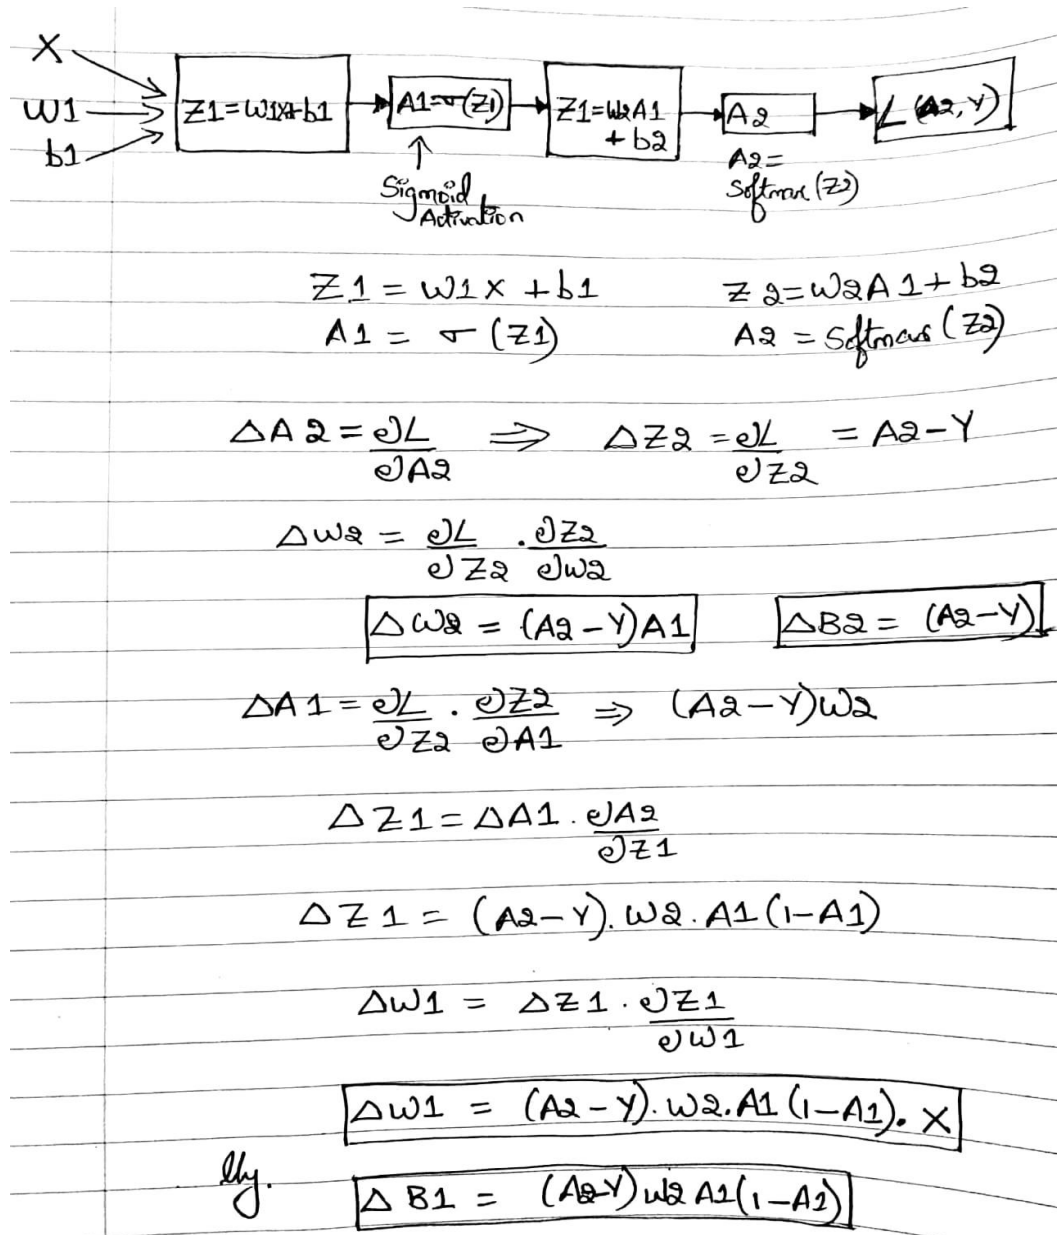 X
W1
b1
Z1=W1X+b1
A1=σ(Z1)
Z1=W2A1
+ b2
A2
L(A2,Y)
Sigmoid
Activation
A2=
Softmax(Z2)
Z1 = W1X + b1
Z2=W2A1+b2
A1 = σ(Z1)
A2 = Softmax(Z2)
ΔA2 = ∂L/∂A2 ⇒ ΔZ2 = ∂L/∂Z2 = A2-Y
ΔW2 = ∂L/∂Z2 . ∂Z2/∂W2
ΔW2 = (A2-Y)A1
ΔB2 = (A2-Y)
ΔA1 = ∂L/∂Z2 . ∂Z2/∂A1 ⇒ (A2-Y)W2
ΔZ1 = ΔA1 . ∂A2/∂Z1
ΔZ1 = (A2-Y).W2.A1(1-A1)
ΔW1 = ΔZ1 . ∂Z1/∂W1
ΔW1 = (A2-Y).W2.A1(1-A1).X
lly.
ΔB1 = (A2-Y)W2A1(1-A1)